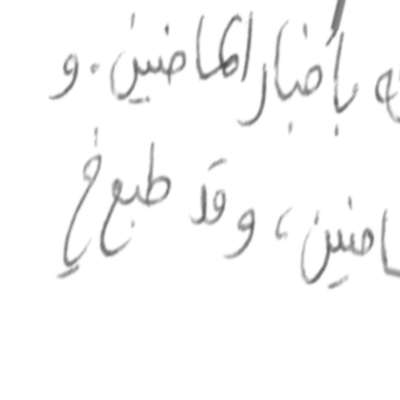 بأخبار الماضين. و
ماضين، وقد طبع في